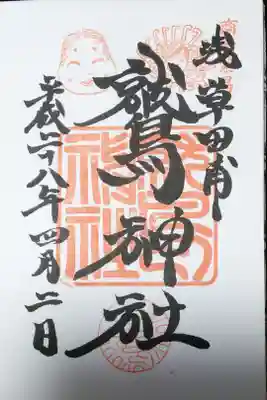 浅草田甫
鷲神社
平成二十八年四月二日